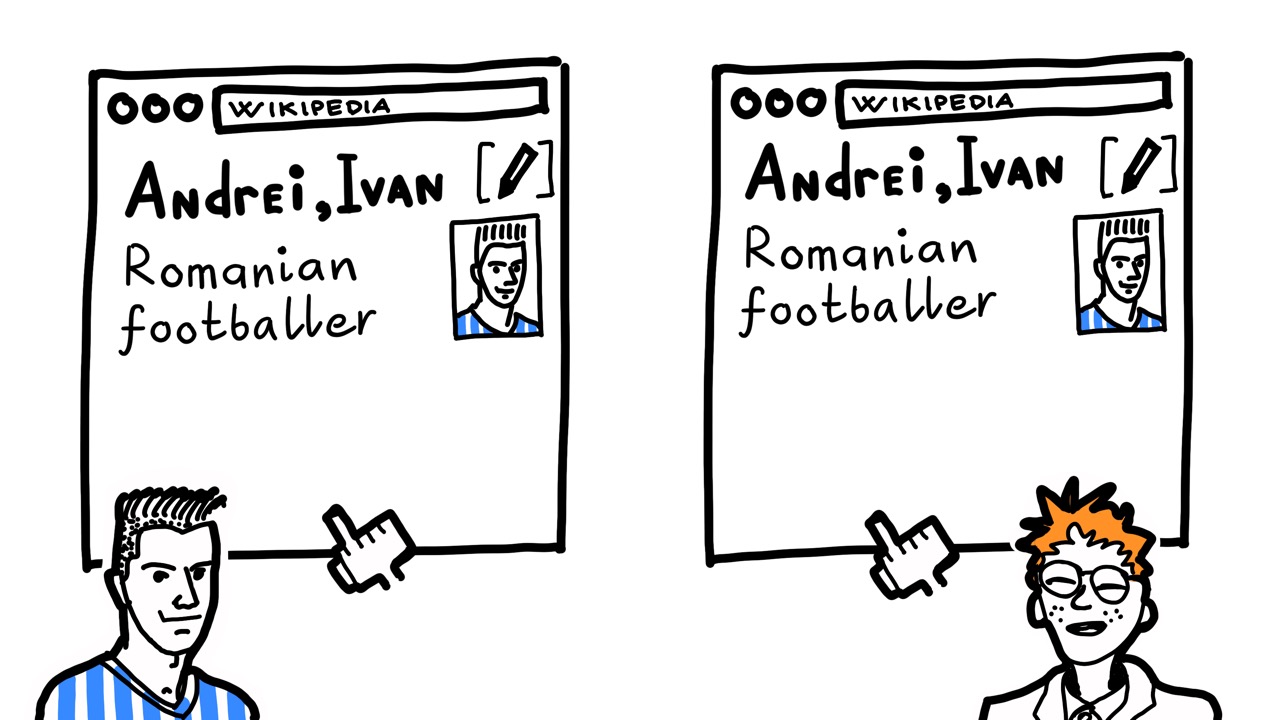 WIKIPEDIA
Andrei, Ivan
Romanian
footballer
WIKIPEDIA
Andrei, Ivan
Romanian
footballer